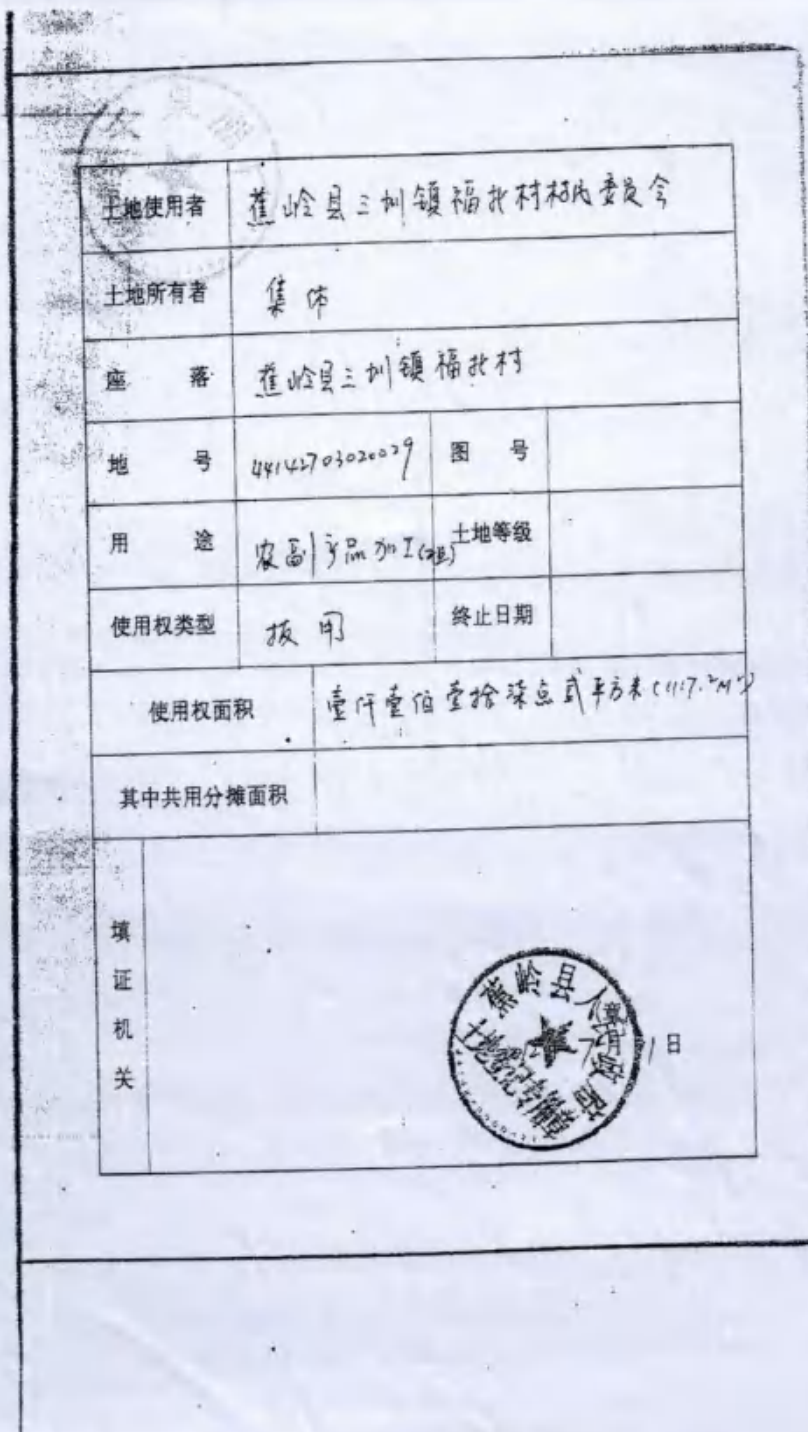 土地使用者 蕉岭县三圳镇福北村村民委员会
土地所有者 集体
座落 蕉岭县三圳镇福北村
地号 44142703020029 图号
用途 农副产品加工 土地等级
使用权类型 拨用 终止日期
使用权面积 壹仟壹佰壹拾柒点贰平方米(1117.2M²)
其中共用分摊面积
填证机关
蕉岭县人民政府
土地登记专用章
(章)
7月 1日